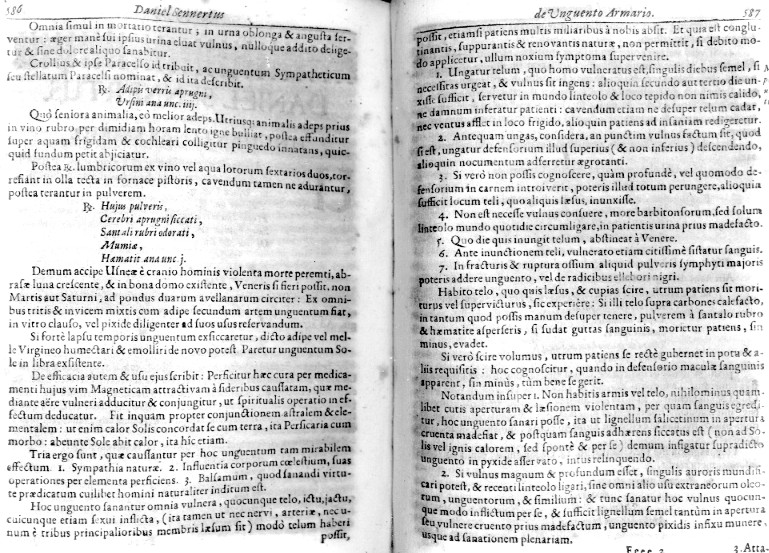 586 Daniel Sennertus
Omnia simul in mortario terantur; in urna oblonga & angusta ser-
ventur: æger mane sui ipsius urina eluat vulnus, nulloque addito delige-
tur & sine dolore aliquo sanabitur.
Crollius & ipse Paracelso id tribuit, ac unguentum Sympatheticum
seu stellatum Paracelsi nominat, & id ita describit.
℞. Adipis verris aprugni,
Ursini ana unc. iiij.
Quò seniora animalia, eò melior adeps. Utriusq; animalis adeps prius
in vino rubro, per dimidiam horam lento igne bulliat, postea effunditur
super aquam frigidam & cochleari colligitur pinguedo innatans, quic-
quid fundum petit abjiciatur.
Postea ℞. lumbricorum ex vino vel aqua lotorum sextarios duos, tor-
refiant in olla tecta in fornace pistoris, cavendum tamen ne adurantur,
postea terantur in pulverem.
℞. Hujus pulveris,
Cerebri aprugni siccati,
Santali rubri odorati,
Mumiæ,
Hæmatit ana unc j.
Demum accipe Usneæ è cranio hominis violenta morte peremti, ab-
rasæ luna crescente, & in bona domo existente, Veneris si fieri possit, non
Martis aut Saturni, ad pondus duarum avellanarum circiter: Ex omni-
bus tritis & invicem mixtis cum adipe secundum artem unguentum fiat,
in vitro clauso, vel pixide diligenter ad suos usus reservandum.
Si fortè lapsu temporis unguentum exsiccaretur, dicto adipe vel mel-
le Virgineo humectari & emolliri de novo potest. Paretur unguentum So-
le in libra existente.
De efficacia autem & usu ejus scribit: Perficitur hæc cura per medica-
menti hujus vim Magneticam attractivam à sideribus caussatam, quæ me-
diante aëre vulneri adducitur & conjungitur, ut spiritualis operatio in ef-
fectum deducatur. Fit inquam propter conjunctionem astralem & ele-
mentalem: ut enim calor Solis concordat se cum terra, ita Persicaria cum
morbo: abeunte Sole abit calor, ita hic etiam.
Tria ergo sunt, quæ caussantur per hoc unguentum tam mirabilem
effectum. 1. Sympathia naturæ. 2. Influentia corporum cœlestium, suas
operationes per elementa perficiens. 3. Balsamum, quod sanandi virtu-
te prædicatum cuilibet homini naturaliter inditum est.
Hoc unguento sanantur omnia vulnera, quocunque telo, ictu, jactu,
cuicunque etiam sexui inflicta, (ita tamen ut nec nervi, arteriæ, nec u-
num è tribus principalioribus membris læsum sit) modò telum haberi
possit,
de Unguento Armario. 587
possit, etiamsi patiens multis miliaribus à nobis absit. Et quia est conglu-
tinantis, suppurantis & renovantis naturæ, non permittit, si debito mo-
do applicetur, ullum noxium symptoma supervenire.
1. Ungatur telum, quo homo vulneratus est, singulis diebus semel, si
necessitas urgeat, & vulnus sit ingens: alioquin secundo aut tertio die un-
xisse sufficit, servetur in mundo linteolo & loco tepido non nimis calido,
ne damnum inferatur patienti: cavendum etiam ne desuper telum cadat,
nec ventus afflet in loco frigido, alioquin patiens ad insaniam redigeretur.
2. Antequam ungas, considera, an punctim vulnus factum sit, quod
si est, ungatur defensorium illud superius (& non inferius) descendendo,
alioquin nocumentum adferretur ægrotanti.
3. Si verò non possis cognoscere, quàm profundè, vel quomodo de-
fensorium in carnem introiverit, poteris illud totum perungere, alioquin
sufficit locum teli, quo aliquis læsus, inunxisse.
4. Non est necesse vulnus consuere, more barbitonsorum, sed solum
linteolo mundo quotidie circumligare, in patientis urina prius madefacto.
5. Quo die quis inungit telum, abstineat à Venere.
6. Ante inunctionem teli, vulnerato etiam citissimè sistatur sanguis.
7. In fracturis & ruptura ossium aliquid pulveris symphyti majoris
poteris addere unguento, vel de radicibus ellebori nigri.
Habito telo, quo quis læsus, & cupias scire, utrum patiens sit mori-
turus vel supervicturus, sic experière: Si illi telo supra carbones calefacto,
in tantum quod possis manum desuper tenere, pulverem à santalo rubro
& hæmatite asperseris, si sudat guttas sanguinis, morietur patiens, sin
minus, evadet.
Si verò scire volumus, utrum patiens se rectè gubernet in potu & a-
liis requisitis: hoc cognoscitur, quando in defensorio maculæ sanguinis
apparent, sin minùs, tùm bene se gerit.
Notandum insuper 1. Non habitis armis vel telo, nihilominus quam-
libet cutis aperturam & læsionem violentam, per quam sanguis egredi-
tur, hoc unguento sanari posse, ita ut lignellum salicetinum in apertura
cruenta madefiat, & postquam sanguis adhærens siccatus est (non ad So-
lis vel ignis calorem, sed spontè & per se) demum infigatur supradicto
unguento in pyxide asservato, intus relinquendo.
2. Si vulnus magnum & profundum esset, singulis auroris mundifi-
cari potest, & recenti linteolo ligari, sine omni alio usu extraneorum oleo-
rum, unguentorum, & similium: & tunc sanatur hoc vulnus quocun-
que modo inflictum per se, & sufficit lignellum semel tantùm in apertura
seu vulnere cruento prius madefactum, unguento pixidis infixu munere,
usque ad sanationem plenariam.
Eeee 2 3. Atta-